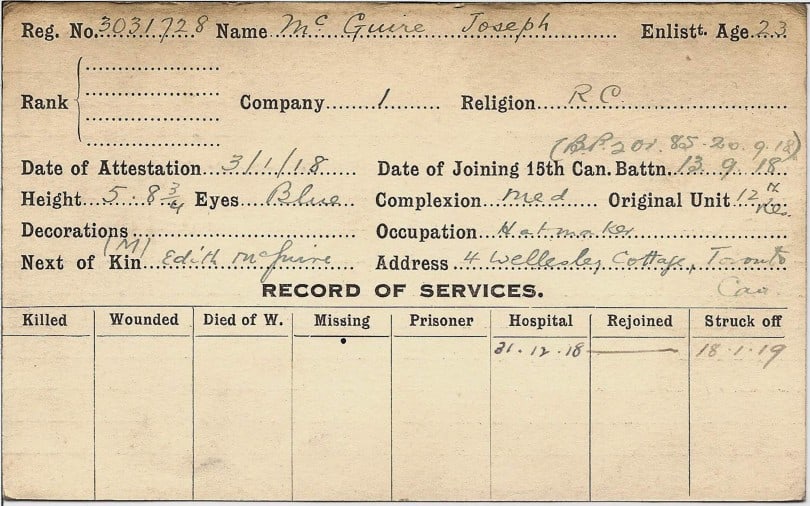 Reg. No. 3031728 Name Mc Guire Joseph Enlistt. Age 23
Rank Company 1 Religion R.C.
(B.P. 201. 85. 20.9.18)
Date of Attestation 3/1/18 Date of Joining 15th Can. Battn. 13.9.18
Height 5.8 3/4 Eyes Blue Complexion Med Original Unit 12th Res.
Decorations Occupation Hatmaker
Next of Kin (M) Edith McGuire Address 4 Wellesley Cottage, Toronto
Can.
RECORD OF SERVICES.
Killed Wounded Died of W. Missing Prisoner Hospital Rejoined Struck off
31.12.18 18.1.19